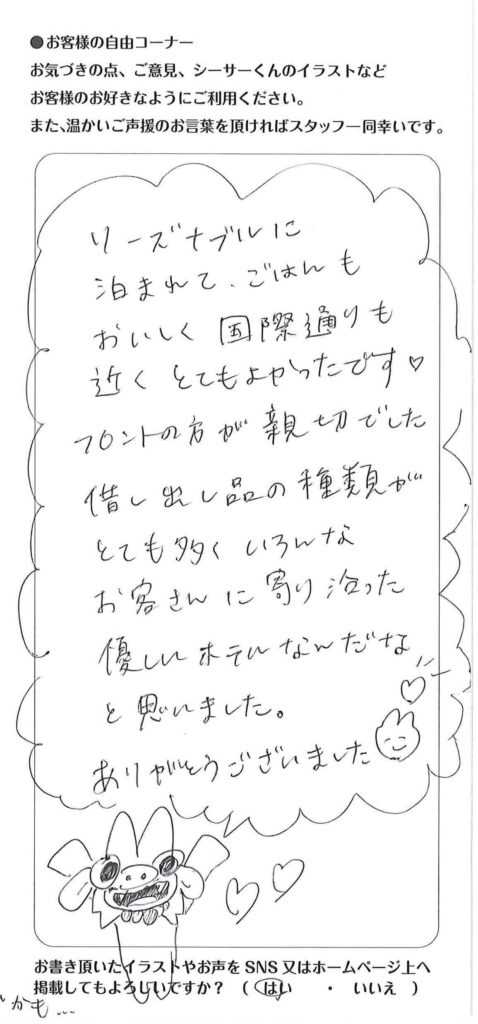 ●お客様の自由コーナー
お気づきの点、ご意見、シーサーくんのイラストなど
お客様のお好きなようにご利用ください。
また、温かいご声援のお言葉を頂ければスタッフ一同幸いです。
リーズナブルに
泊まれて、ごはんも
おいしく 国際通りも
近く とてもよかったです♡
フロントの方が 親切でした
借し出し品の種類が
とても多く いろんな
お客さんに寄り沿った
優しいホテルなんだな
と思いました。
ありがとうございました
お書き頂いたイラストやお声を SNS 又はホームページ上へ
掲載してもよろしいですか？ （ はい ・ いいえ ）
かも…